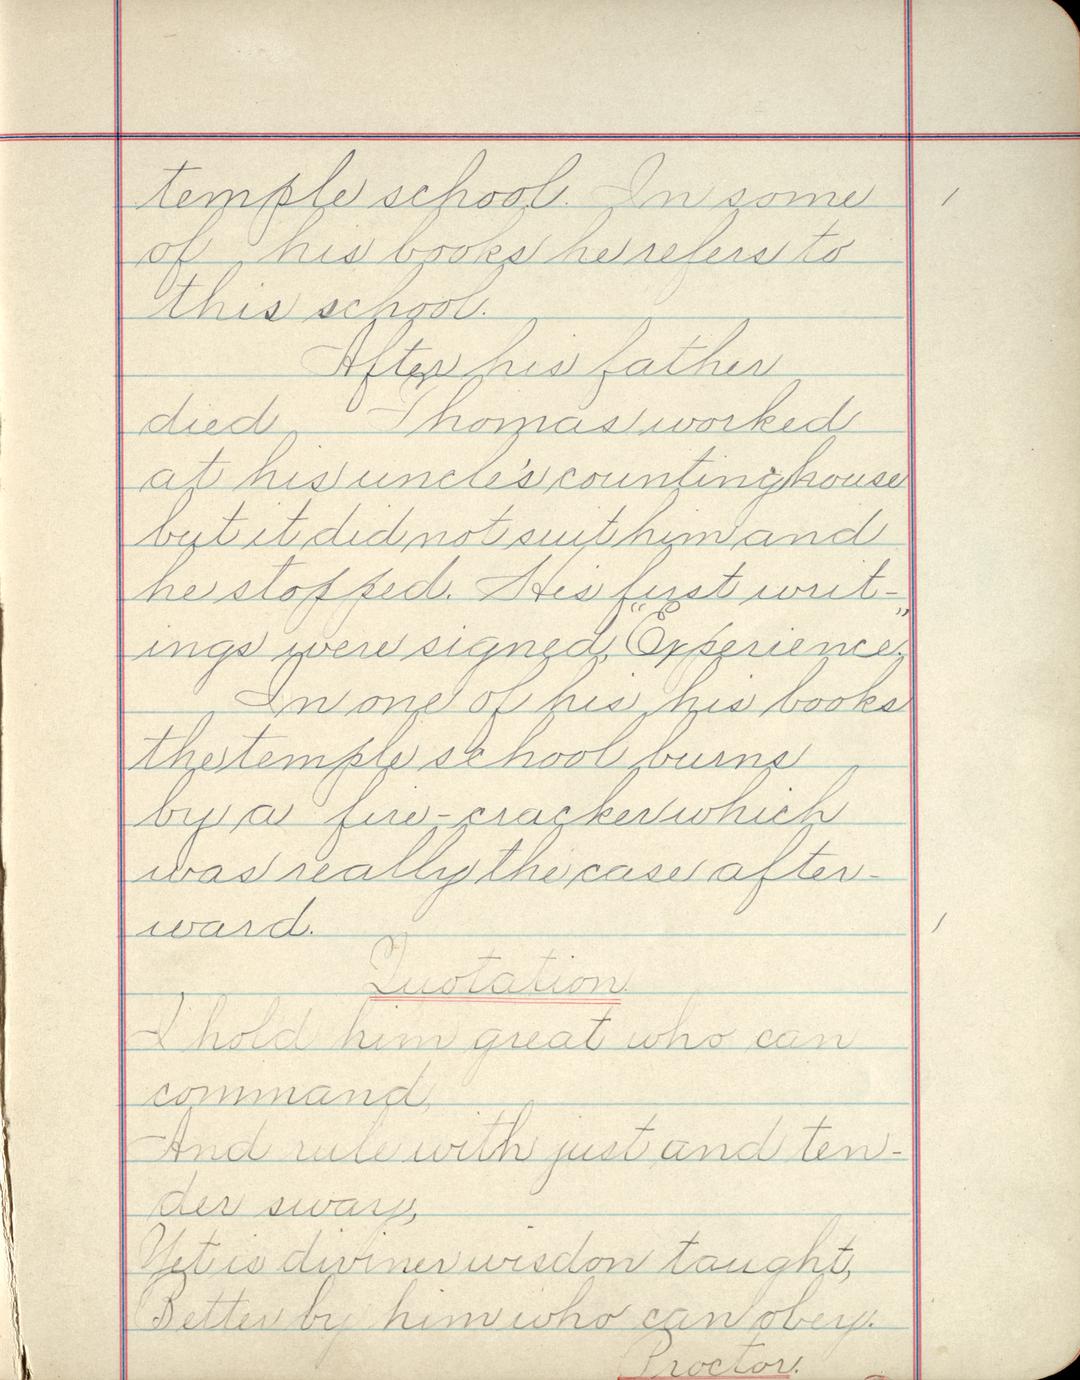 temple school. In some
of his books he refers to
this school.
After his father
died Thomas worked
at his uncle's counting house
but it did not suit him and
he stopped. His first writ-
ings were signed, "Experience."
In one of his his books
the temple school burns
by a fire-cracker which
was really the case after-
ward.
Quotation
I hold him great who can
command,
And rule with just and ten-
der sway,
Yet is diviner wisdon taught,
Better by him who can obey.
Proctor.